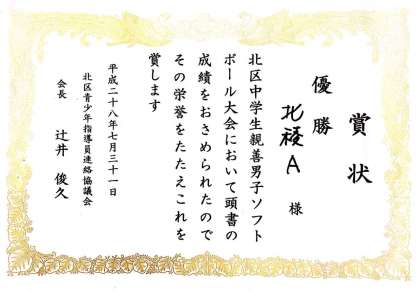 賞状
優勝
北稜A 様
北区中学生親善男子ソフト
ボール大会において頭書の
成績をおさめられたので
その栄誉をたたえこれを
賞します
平成二十八年七月三十一日
北区青少年指導員連絡協議会
会長 辻井 俊久